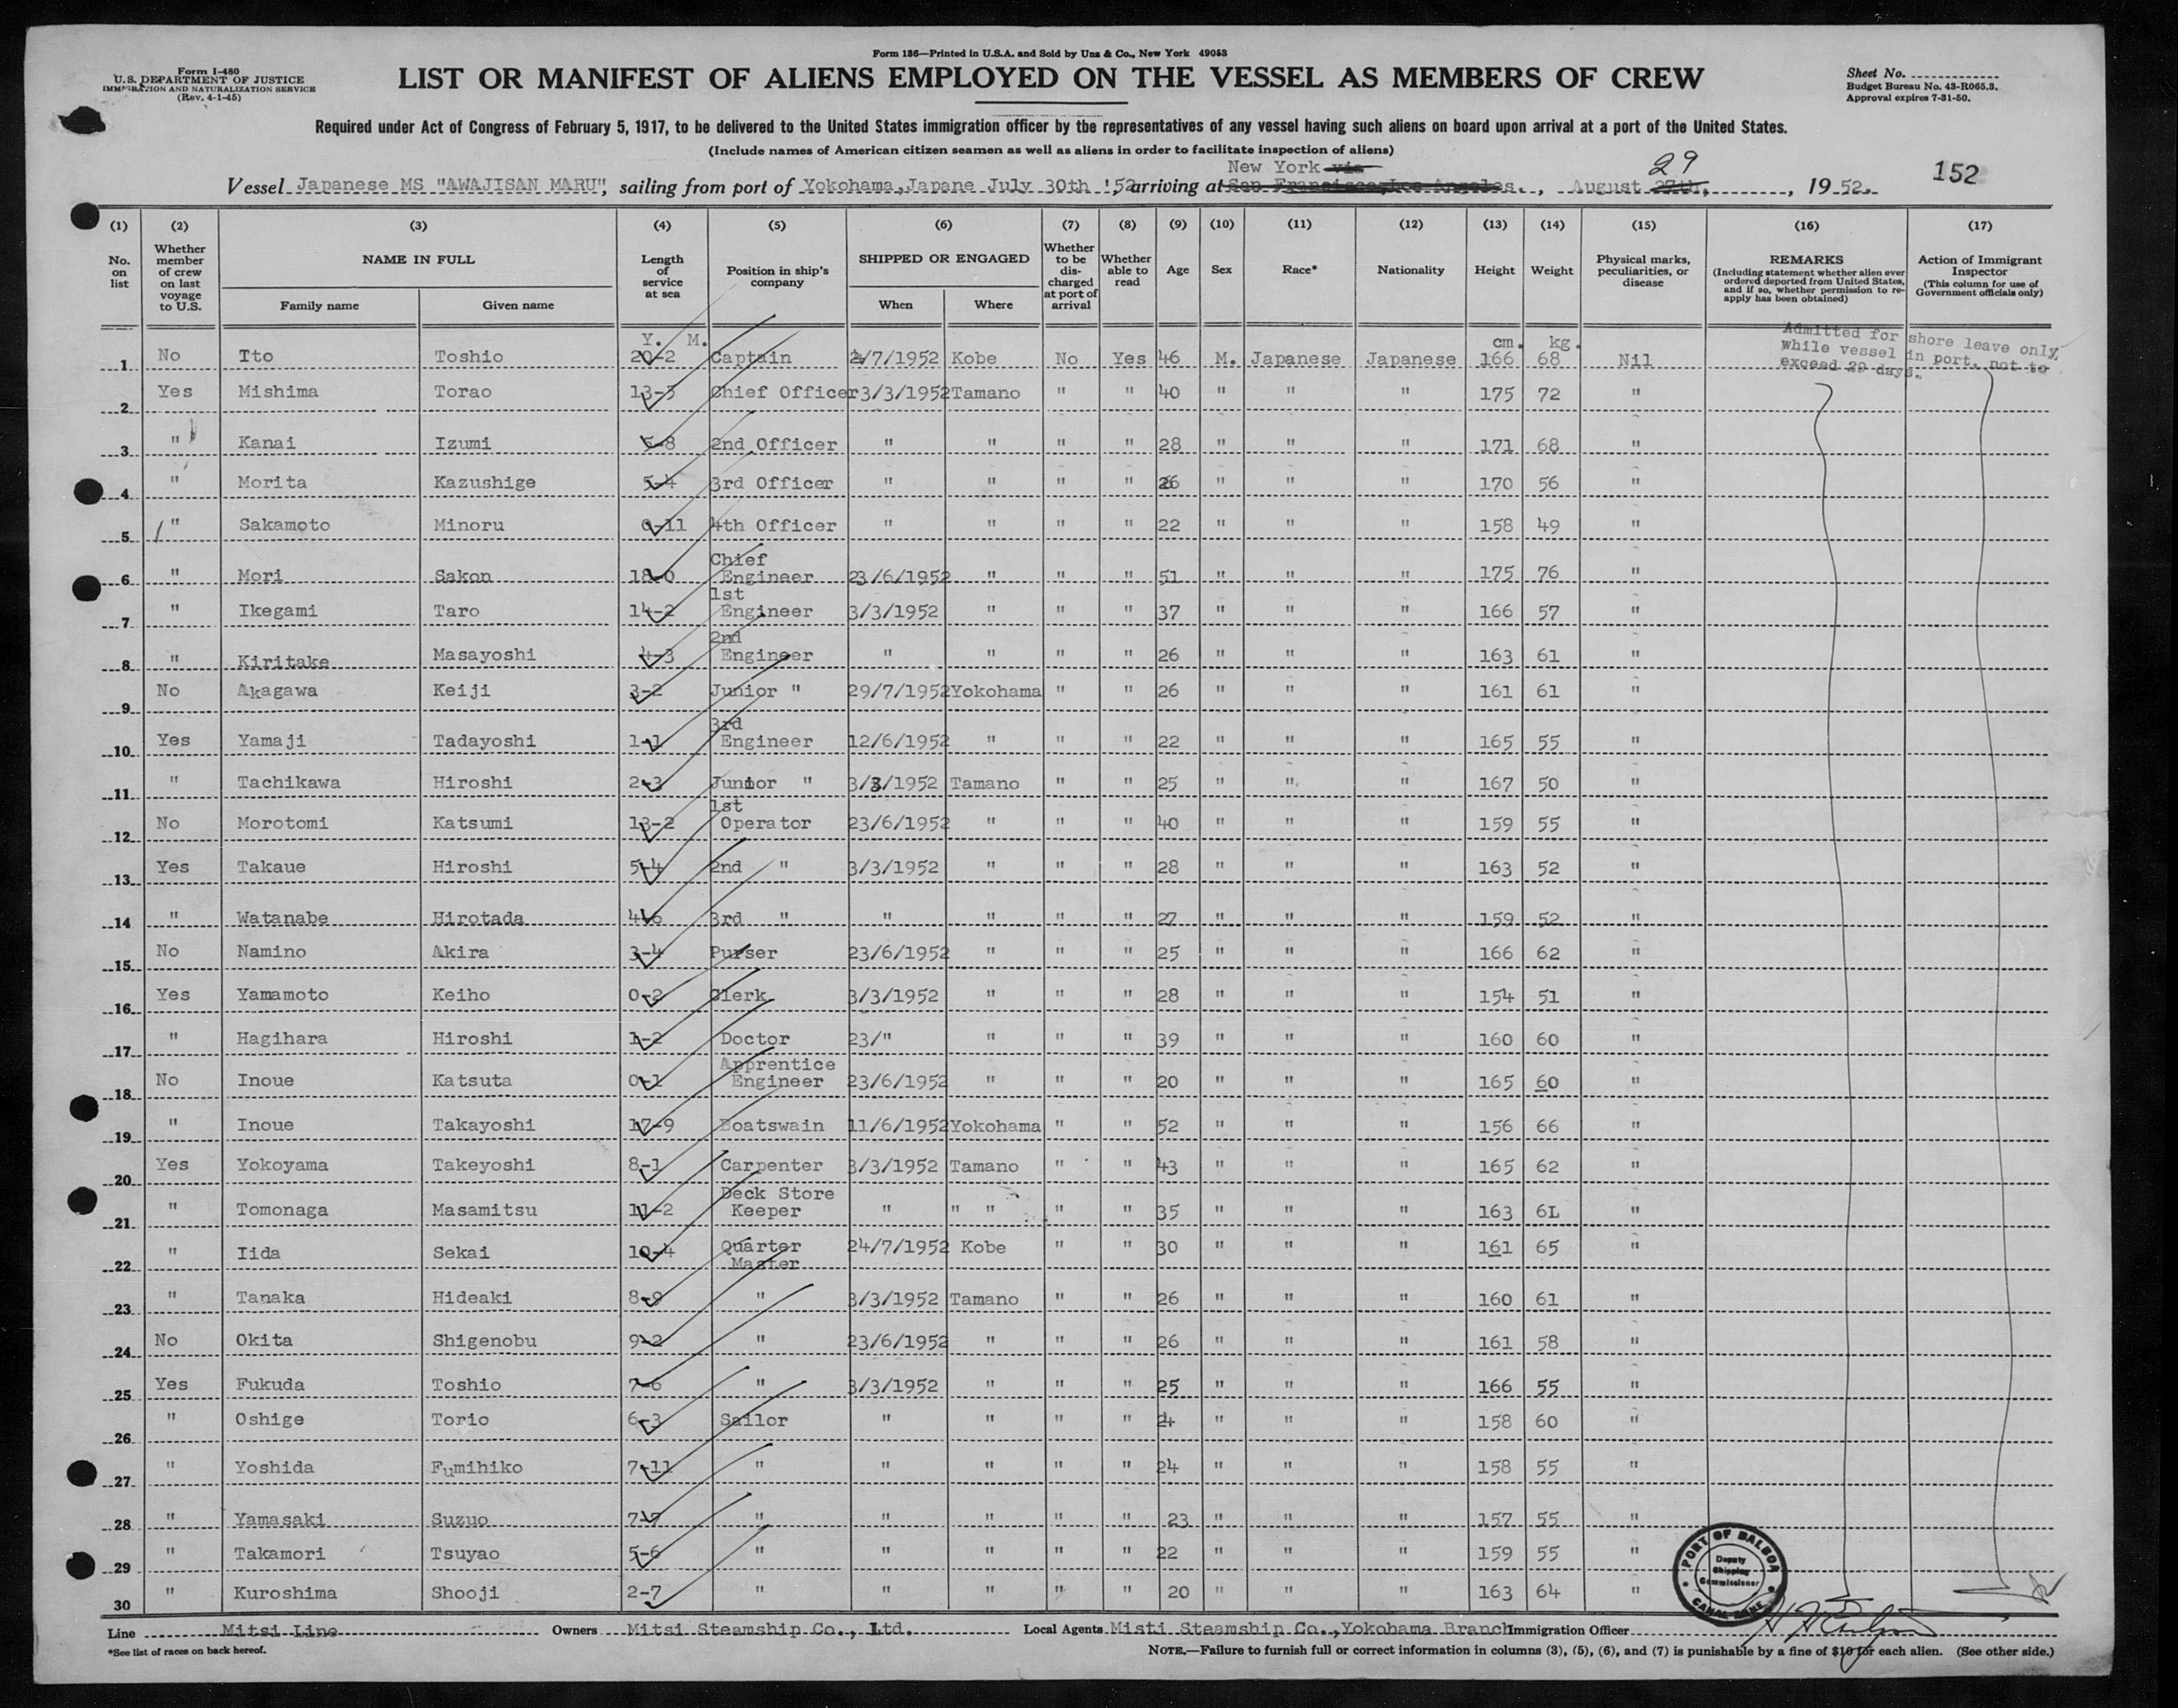 Form 136—Printed in U.S.A. and Sold by Unz & Co., New York 49053
Form I-480
U.S. DEPARTMENT OF JUSTICE
IMMIGRATION AND NATURALIZATION SERVICE
(Rev. 4-1-45)
LIST OR MANIFEST OF ALIENS EMPLOYED ON THE VESSEL AS MEMBERS OF CREW
Sheet No.
Budget Bureau No. 43-R065.3.
Approval expires 7-31-50.
Required under Act of Congress of February 5, 1917, to be delivered to the United States immigration officer by the representatives of any vessel having such aliens on board upon arrival at a port of the United States.
(Include names of American citizen seamen as well as aliens in order to facilitate inspection of aliens)
New York via 29
Vessel Japanese MS "AWAJISAN MARU", sailing from port of Yokohama,Japane July 30th '52 arriving at San Francisco, Los Angeles., August 27th, , 1952. 152
(1) (2) (3) (4) (5) (6) (7) (8) (9) (10) (11) (12) (13) (14) (15) (16) (17)
No. on list Whether member of crew on last voyage to U.S. NAME IN FULL Family name Given name Length of service at sea Position in ship's company SHIPPED OR ENGAGED When Where Whether to be discharged at port of arrival Whether able to read Age Sex Race* Nationality Height Weight Physical marks, peculiarities, or disease REMARKS (Including statement whether alien ever ordered deported from United States, and if so, whether permission to reapply has been obtained) Action of Immigrant Inspector (This column for use of Government officials only)
Y. M. cm. kg.
Admitted for shore leave only
while vessel in port, not to
exceed 29 days.
1 No Ito Toshio 20-2 Captain 24/7/1952 Kobe No Yes 46 M. Japanese Japanese 166 68 Nil
2 Yes Mishima Torao 13-3 Chief Officer 3/3/1952 Tamano " " 40 " " " 175 72 "
3 " Kanai Izumi 5-8 2nd Officer " " " " 28 " " " 171 68 "
4 " Morita Kazushige 5-4 3rd Officer " " " " 26 " " " 170 56 "
5 " Sakamoto Minoru 0-11 4th Officer " " " " 22 " " " 158 49 "
6 " Mori Sakon 18-0 Chief Engineer 23/6/1952 " " " 51 " " " 175 76 "
7 " Ikegami Taro 14-2 1st Engineer 3/3/1952 " " " 37 " " " 166 57 "
8 " Kiritake Masayoshi 4-3 2nd Engineer " " " " 26 " " " 163 61 "
9 No Akagawa Keiji 3-2 Junior " 29/7/1952 Yokohama " " 26 " " " 161 61 "
10 Yes Yamaji Tadayoshi 1-1 3rd Engineer 12/6/1952 " " " 22 " " " 165 55 "
11 " Tachikawa Hiroshi 2-3 Junior " 3/3/1952 Tamano " " 25 " " " 167 50 "
12 No Morotomi Katsumi 13-2 1st Operator 23/6/1952 " " " 40 " " " 159 55 "
13 Yes Takaue Hiroshi 5-4 2nd " 3/3/1952 " " " 28 " " " 163 52 "
14 " Watanabe Hirotada 4-6 3rd " " " " " 27 " " " 159 52 "
15 No Namino Akira 3-4 Purser 23/6/1952 " " " 25 " " " 166 62 "
16 Yes Yamamoto Keiho 0-2 Clerk 3/3/1952 " " " 28 " " " 154 51 "
17 " Hagihara Hiroshi 1-2 Doctor 23/" " " " 39 " " " 160 60 "
18 No Inoue Katsuta 0-1 Apprentice Engineer 23/6/1952 " " " 20 " " " 165 60 "
19 " Inoue Takayoshi 17-9 Boatswain 11/6/1952 Yokohama " " 52 " " " 156 66 "
20 Yes Yokoyama Takeyoshi 8-1 Carpenter 3/3/1952 Tamano " " 43 " " " 165 62 "
21 " Tomonaga Masamitsu 11-2 Deck Store Keeper " " " " " 35 " " " 163 6L "
22 " Iida Sekai 10-4 Quarter Master 24/7/1952 Kobe " " 30 " " " 161 65 "
23 " Tanaka Hideaki 8-9 " 3/3/1952 Tamano " " 26 " " " 160 61 "
24 No Okita Shigenobu 9-2 " 23/6/1952 " " " 26 " " " 161 58 "
25 Yes Fukuda Toshio 7-6 " 3/3/1952 " " " 25 " " " 166 55 "
26 " Oshige Torio 6-3 Sailor " " " " 24 " " " 158 60 "
27 " Yoshida Fumihiko 7-11 " " " " " 24 " " " 158 55 "
28 " Yamasaki Suzuo 7-7 " " " " " 23 " " " 157 55 "
29 " Takamori Tsuyao 5-6 " " " " " 22 " " " 159 55 "
30 " Kuroshima Shooji 2-7 " " " " " 20 " " " 163 64 "
PORT OF BALBOA
Deputy
Shipping
Commissioner
CANAL ZONE
Line Mitsi Line Owners Mitsi Steamship Co., Ltd. Local Agents Misti Steamship Co.,Yokohama Branch Immigration Officer
*See list of races on back hereof.
NOTE.—Failure to furnish full or correct information in columns (3), (5), (6), and (7) is punishable by a fine of $10 for each alien. (See other side.)